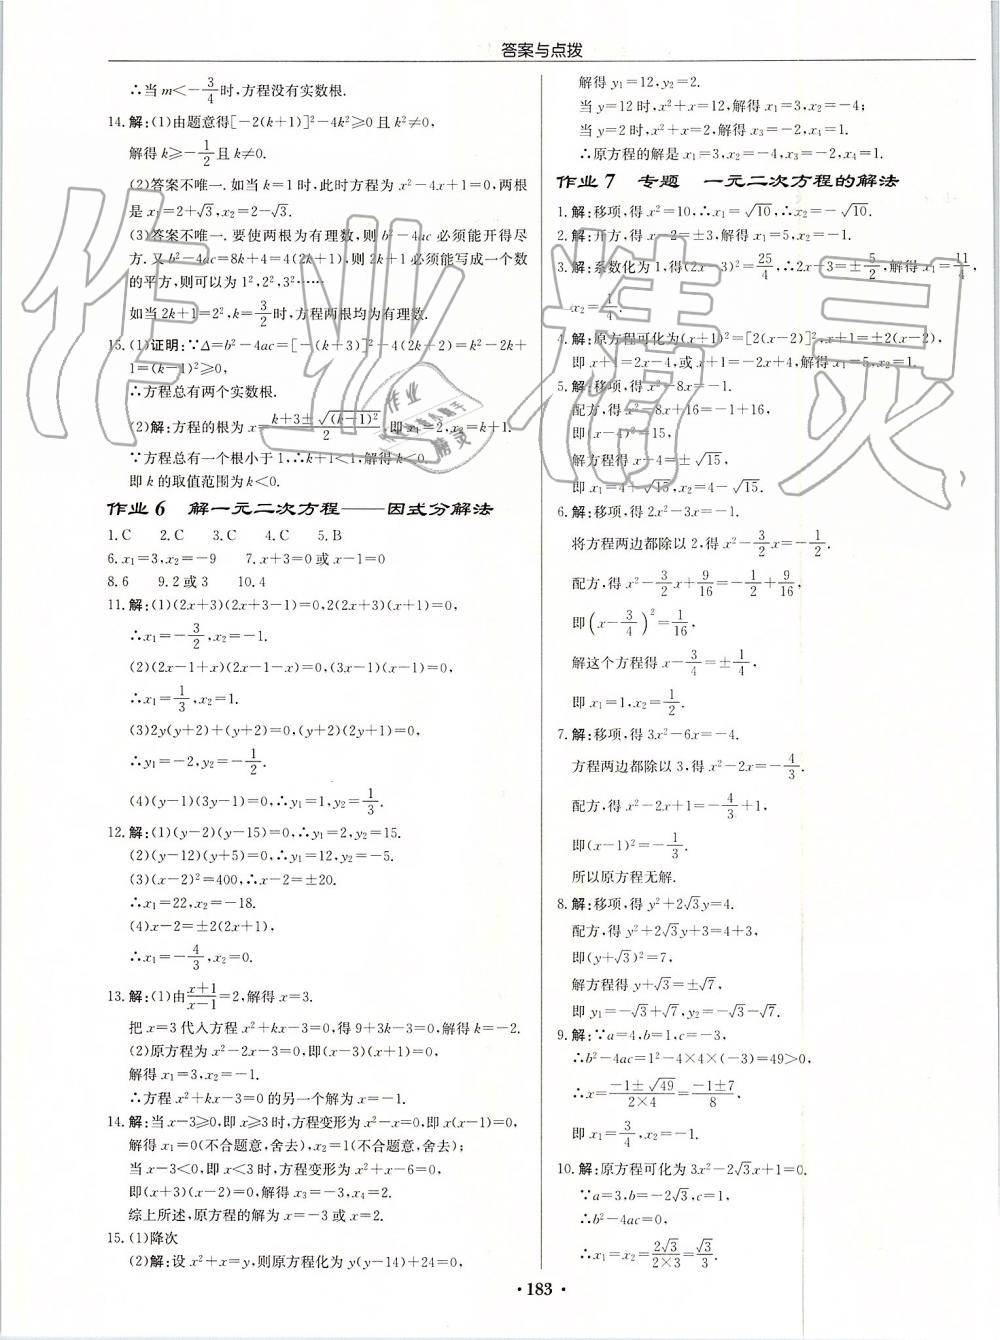 答案与点拨
∴当m<-3/4时,方程没有实数根.
14.解:(1)由题意得[-2(k+1)]²-4k²≥0且k²≠0,
解得k≥-1/2且k≠0.
(2)答案不唯一.如当k=1时,此时方程为x²-4x+1=0,两根
是x₁=2+√3,x₂=2-√3.
(3)答案不唯一.要使两根为有理数,则b²-4ac必须能开得尽
方.又b²-4ac=8k+4=4(2k+1),则2k+1必须能写成一个数
的平方,则可以为1²,2²,3²……
如当2k+1=2²,k=3/2时,方程两根均为有理数.
15.(1)证明:∵Δ=b²-4ac=[-(k+3)]²-4(2k+2)=k²-2k+
1=(k-1)²≥0,
∴方程总有两个实数根.
(2)解:方程的根为x=(k+3±√(k-1)²)/2,即x₁=2,x₂=k+1.
∵方程总有一个根小于1,∴k+1<1,解得k<0.
即k的取值范围为k<0.
作业6 解一元二次方程——因式分解法
1.C 2.C 3.C 4.C 5.B
6.x₁=3,x₂=-9 7.x+3=0或x-1=0
8.6 9.2或3 10.4
11.解:(1)(2x+3)(2x+3-1)=0,2(2x+3)(x+1)=0,
∴x₁=-3/2,x₂=-1.
(2)(2x-1+x)(2x-1-x)=0,(3x-1)(x-1)=0,
∴x₁=1/3,x₂=1.
(3)2y(y+2)+(y+2)=0,(y+2)(2y+1)=0,
∴y₁=-2,y₂=-1/2.
(4)(y-1)(3y-1)=0,∴y₁=1,y₂=1/3.
12.解:(1)(y-2)(y-15)=0,∴y₁=2,y₂=15.
(2)(y-12)(y+5)=0,∴y₁=12,y₂=-5.
(3)(x-2)²=400,∴x-2=±20.
∴x₁=22,x₂=-18.
(4)x-2=±2(2x+1),
∴x₁=-4/3,x₂=0.
13.解:(1)由(x+1)/(x-1)=2,解得x=3.
把x=3代入方程x²+kx-3=0,得9+3k-3=0,解得k=-2.
(2)原方程为x²-2x-3=0,即(x-3)(x+1)=0,
解得x₁=3,x₂=-1.
∴方程x²+kx-3=0的另一个解为x=-1.
14.解:当x-3≥0,即x≥3时,方程变形为x²-x=0,即x(x-1)=0,
解得x₁=0(不合题意,舍去),x₂=1(不合题意,舍去);
当x-3<0,即x<3时,方程变形为x²+x-6=0,
即(x+3)(x-2)=0,解得x₃=-3,x₄=2.
综上所述,原方程的解为x=-3或x=2.
15.(1)降次
(2)解:设x²+x=y,则原方程化为y(y-14)+24=0,
解得y₁=12,y₂=2.
当y=12时,x²+x=12,解得x₁=3,x₂=-4;
当y=2时,x²+x=2,解得x₃=-2,x₄=1.
∴原方程的解是x₁=3,x₂=-4,x₃=-2,x₄=1.
作业7 专题 一元二次方程的解法
1.解:移项,得x²=10,∴x₁=√10,∴x₂=-√10.
2.解:开方,得x-2=±3,解得x₁=5,x₂=-1.
3.解:系数化为1,得(2x-3)²=25/4,∴2x-3=±5/2,解得x₁=11/4,
x₂=1/4.
4.解:原方程可化为(x+1)²=[2(x-2)]²,x+1=±2(x-2).
即x+1=2x-4,或x+1=-2x+4,解得x₁=5,x₂=1.
5.解:移项,得x²-8x=-1.
配方,得x²-8x+16=-1+16,
即(x-4)²=15,
解方程得x-4=±√15,
即x₁=4+√15,x₂=4-√15.
6.解:移项,得2x²-3x=-1.
将方程两边都除以2,得x²-3/2x=-1/2.
配方,得x²-3/2x+9/16=-1/2+9/16,
即(x-3/4)²=1/16,
解这个方程得x-3/4=±1/4,
即x₁=1,x₂=1/2.
7.解:移项,得3x²-6x=-4.
方程两边都除以3,得x²-2x=-4/3.
配方,得x²-2x+1=-4/3+1,
即(x-1)²=-1/3.
所以原方程无解.
8.解:移项,得y²+2√3y=4.
配方,得y²+2√3y+3=4+3,
即(y+√3)²=7,
解方程得y+√3=±√7,
即y₁=-√3+√7,y₂=-√3-√7.
9.解:∵a=4,b=1,c=-3,
∴b²-4ac=1²-4×4×(-3)=49>0,
∴x=(-1±√49)/(2×4)=(-1±7)/8,
即x₁=3/4,x₂=-1.
10.解:原方程可化为3x²-2√3x+1=0.
∵a=3,b=-2√3,c=1,
∴b²-4ac=0,
∴x₁=x₂=2√3/(2×3)=√3/3.
·183·
作业精灵